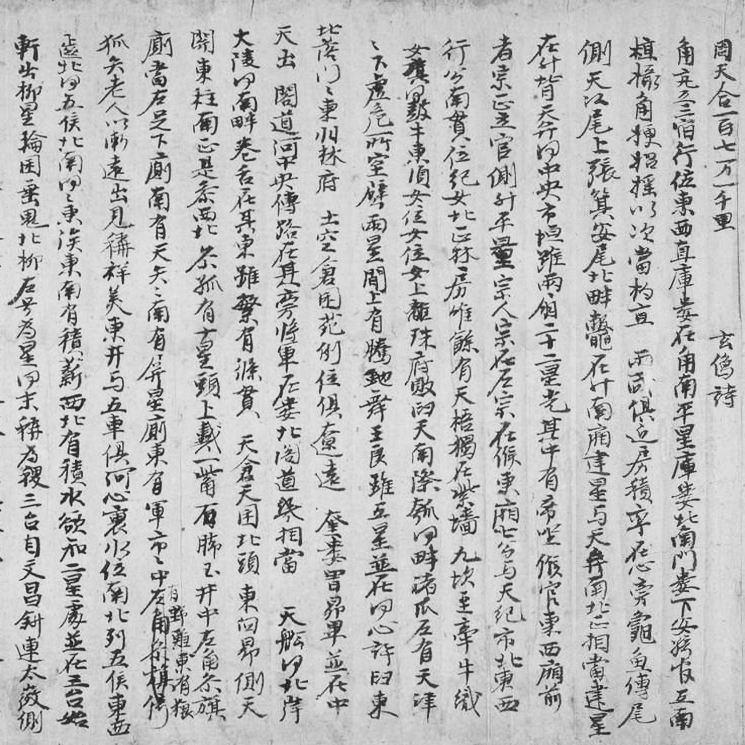 周天合一百七万一千里　玄像詩
角亢二宿行位東西直庫婁在角南平星庫婁北南門婁下安騎官在南
植攝角梗招搖以次當杓直兩咸俱近房積卒在心旁龜魚傳尾
側天江尾上張箕安尾北畔鼈在斗南廂建星与天弁南北正相當建星
在斗背天弁河中央市垣雖兩扇二十二星光其中有帝坐候官東西廂前
者宗正立官側斗平量宗人宗在左宗在候東廂七公与天紀市北東西
行公南貫位紀女北正林房惟餘有天棓獨在紫墻九坎至牽牛織
女旗河鼓牛東須女位女上離珠府敗臼天南際瓠河畔諸瓜左有天津
下虛危所室壁兩星間上有騰蛇舞王良雖五星並在河心許臼東
北落門東羽林府土空倉囷苑例位俱遼遠奎婁胃昴畢並在中
天出閣道河中央傳路在其旁將軍在婁北閣道與相當天船河北岸
大陵河南畔卷舌在其東雖繁有條貫天倉天囷北頭東向昴側天
關東柱南正是參西北參狐有十星頭上戴一觜有肺玉井中左角參旗
廁當右足下廁南有天矢南有屏星廁東有軍市中有野雞東有狼
狐矢老人以漸遠出見稱祥美東井与五車俱河心裏水位南北列五侯東西
遠北河五侯北南河東涘東南有積薪西北有積水欲知二星處並在三台始
軒出柳星輪囷垂鬼北柳右号為星河末稱為稷三台自文昌斜連太微側